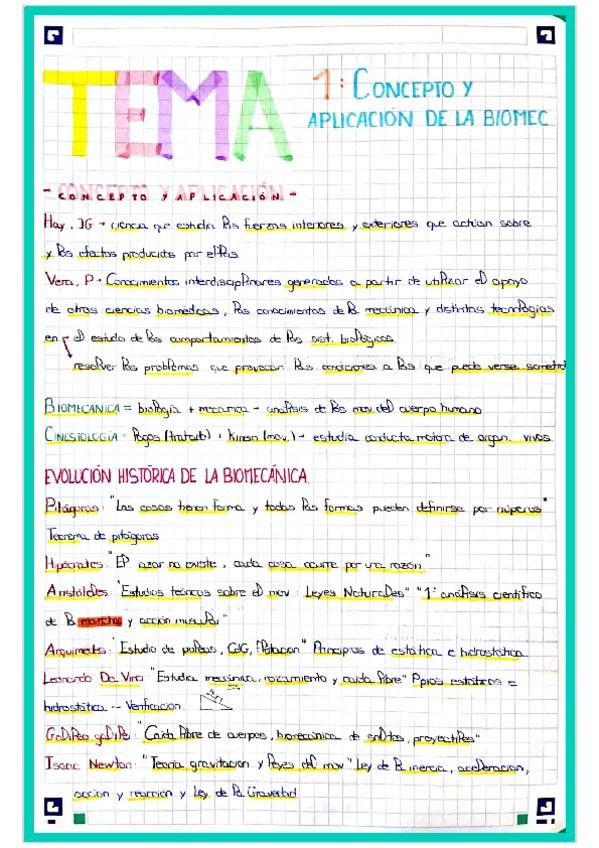 TEMA 1: CONCEPTO Y
APLICACIÓN DE LA BIOMEC
- CONCEPTO Y APLICACIÓN -
Hay, JG → ciencia que estudia las fuerzas interiores y exteriores que actúan sobre
y los efectos producidos por ellas
Vera, P → Conocimientos interdisciplinares generados a partir de utilizar el apoyo
de otras ciencias biomédicas, los conocimientos de la mecánica y distintas tecnologías
en el estudio de los comportamientos de los sist. biológicos.
resolver los problemas que provocan las condiciones a las que puede verse sometid
BIOMECÁNICA = biología + mecánica - análisis de los mov. del cuerpo humano
CINESIOLOGÍA = Logos (tratado) + Kinesn (mov.) - estudia conducta motora de organ. vivos.
EVOLUCIÓN HISTÓRICA DE LA BIOMECÁNICA.
Pitágoras: "Las cosas tienen forma y todas las formas pueden definirse por números"
Teorema de pitágoras
Hipócrates: "El azar no existe, cada cosa ocurre por una razón"
Aristóteles: "Estudios teóricos sobre el mov: Leyes Naturales" "1º análisis científico
de la marcha y acción muscular"
Arquímedes: "Estudio de poleas, CdG, flotación" Principios de estática e hidrostática
Leonardo Da Vinci "Estudia mecánica, rozamiento y caída libre" Ppios estáticos e
hidrostática -- Verificación.
Galileo galilei: "Caída libre de cuerpos, biomecánica de saltos, proyectiles"
Isaac Newton: "Teoría gravitación y leyes del mov" Ley de la inercia, aceleración,
acción y reacción y Ley de la Gravedad